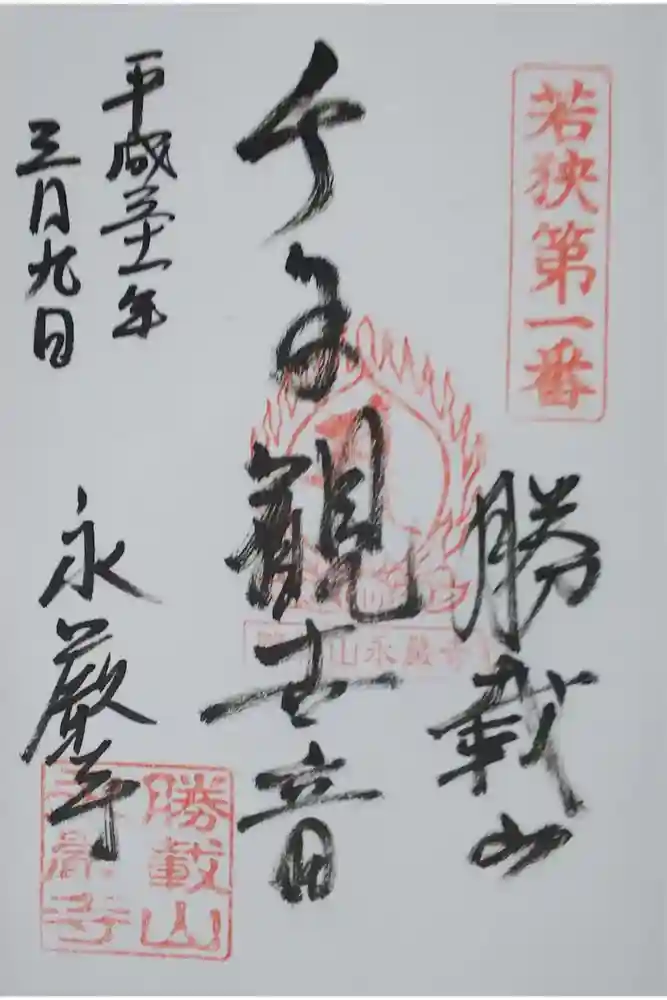 若狭第一番
勝載山
千手観世音
勝載山永嚴寺
平成三十一年
三月九日
永厳寺
勝載山
永嚴寺